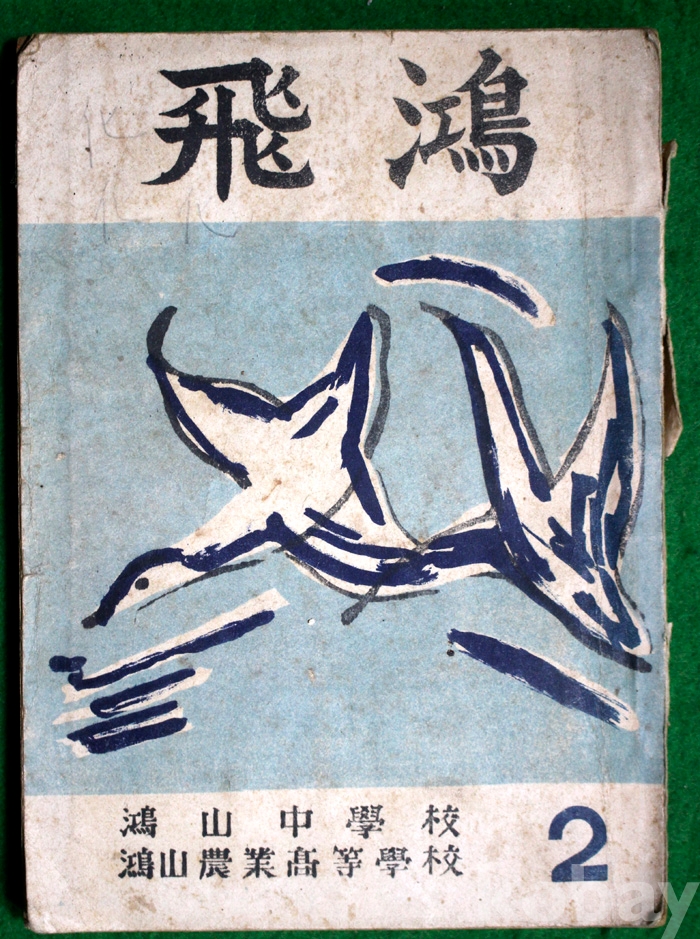 飛鴻
鴻山中學校
鴻山農業高等學校
2